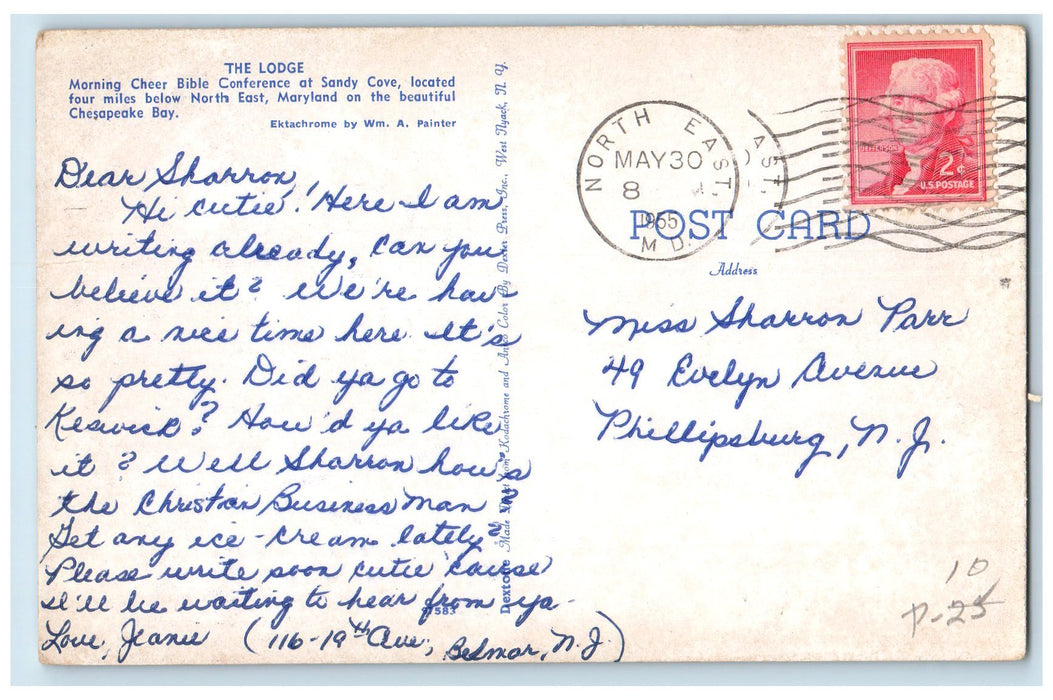 THE LODGE
Morning Cheer Bible Conference at Sandy Cove, located
four miles below North East, Maryland on the beautiful
Chesapeake Bay.
Ektachrome by Wm. A. Painter
Dear Sharron,
Hi cutie! Here I am
writing already, can you
believe it? We're hav-
ing a nice time here It's
so pretty. Did ya go to
Keswick? How'd ya like
it? Well Sharron how's
the Christian Business Man?
Get any ice-cream lately?
Please write soon cutie cause
I'll be waiting to hear from ya-
Love, Jeanie (116-19th Ave, Belmar, N.J.)
Dextone Made Direct from Kodachrome and Ansco Color By Dexter Press, Inc., West Nyack, N. Y.
NORTH EAST,
MAY 30
8
1955
MD.
AST,
JEFFERSON
2¢
U.S. POSTAGE
POST CARD
Address
Miss Sharron Parr
49 Evelyn Avenue
Phillipsburg, N.J.
10
P-25